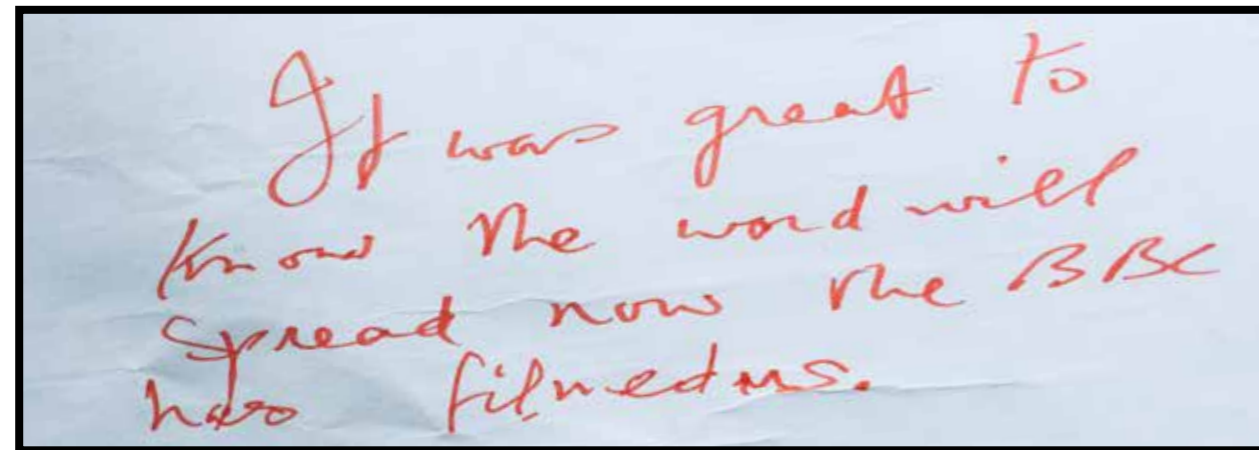 It was great to
know the word will
spread now the BBC
has filmed us.